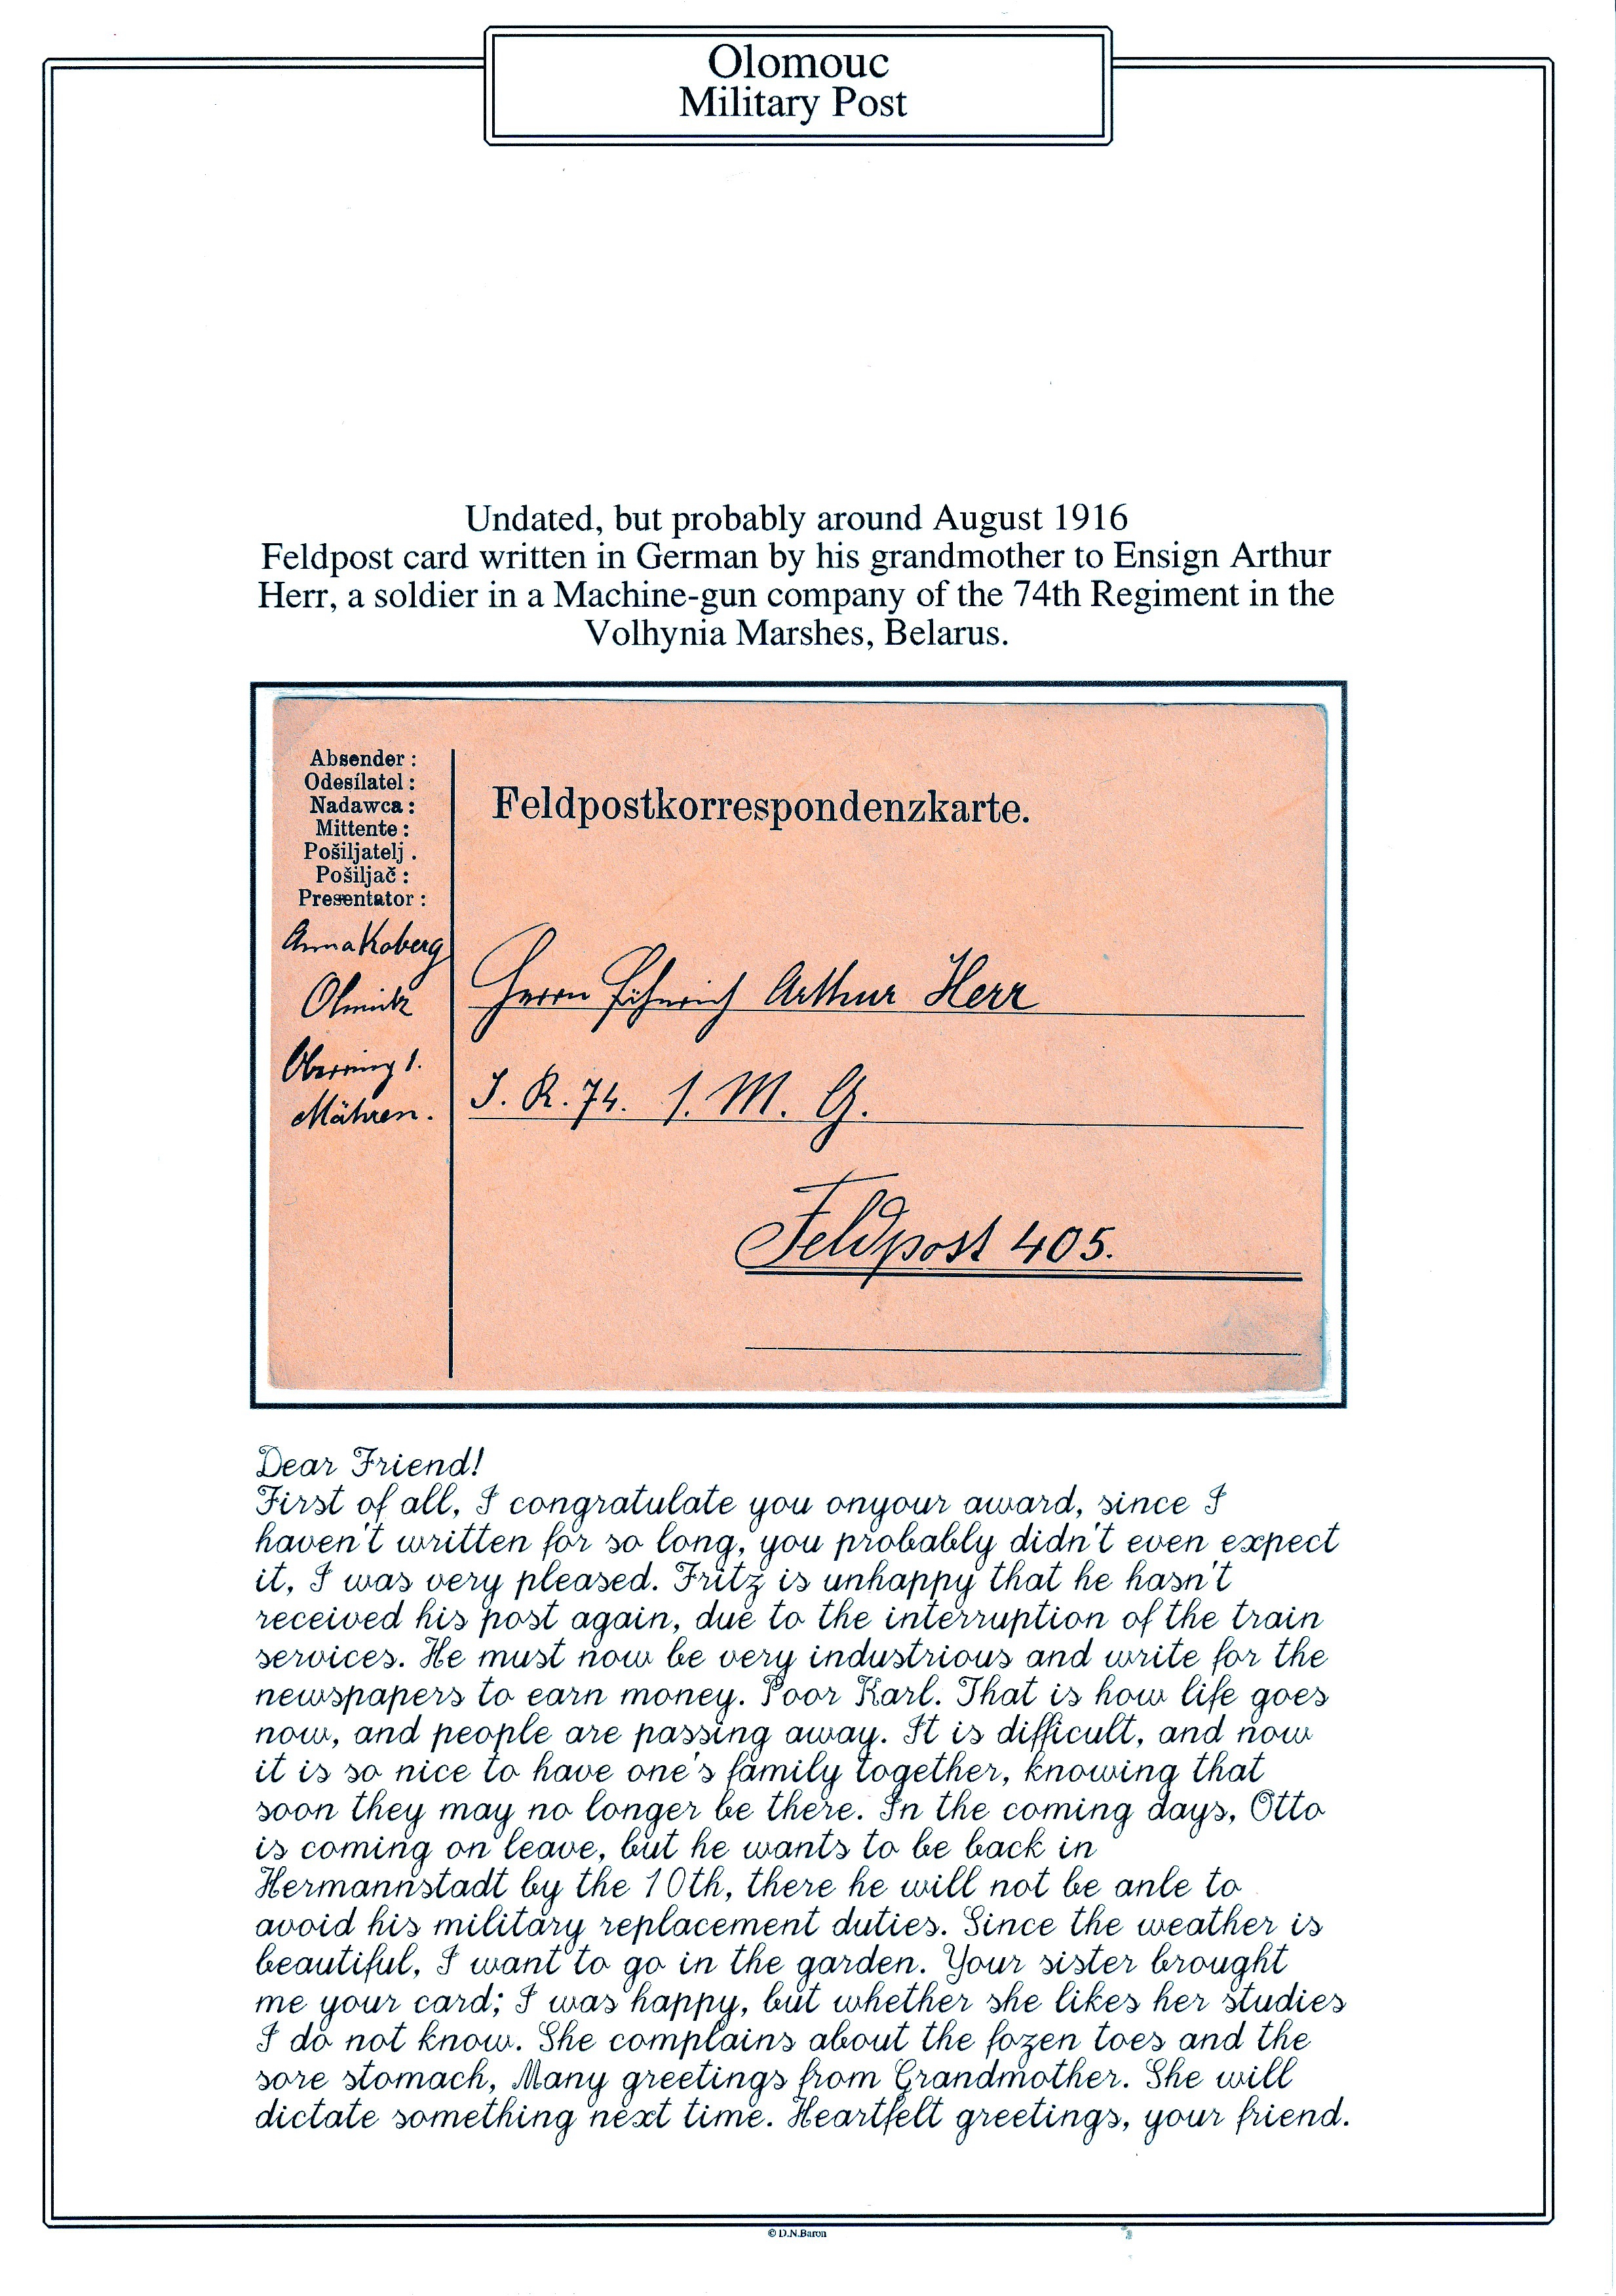 Olomouc
Military Post
Undated, but probably around August 1916
Feldpost card written in German by his grandmother to Ensign Arthur
Herr, a soldier in a Machine-gun company of the 74th Regiment in the
Volhynia Marshes, Belarus.
Absender :
Odesílatel :
Nadawca :
Mittente :
Pošiljatelj .
Pošiljač :
Presentator :
Anna Koberg
Olmütz
Oberring 1.
Mähren.
Feldpostkorrespondenzkarte.
Herrn Fähnrich Arthur Herr
I. R. 74. 1. M. G.
Feldpost 405.
Dear Friend!
First of all, I congratulate you onyour award, since I
haven't written for so long, you probably didn't even expect
it, I was very pleased. Fritz is unhappy that he hasn't
received his post again, due to the interruption of the train
services. He must now be very industrious and write for the
newspapers to earn money. Poor Karl. That is how life goes
now, and people are passing away. It is difficult, and now
it is so nice to have one's family together, knowing that
soon they may no longer be there. In the coming days, Otto
is coming on leave, but he wants to be back in
Hermannstadt by the 10th, there he will not be anle to
avoid his military replacement duties. Since the weather is
beautiful, I want to go in the garden. Your sister brought
me your card; I was happy, but whether she likes her studies
I do not know. She complains about the fozen toes and the
sore stomach, Many greetings from Grandmother. She will
dictate something next time. Heartfelt greetings, your friend.
© D.N.Baron